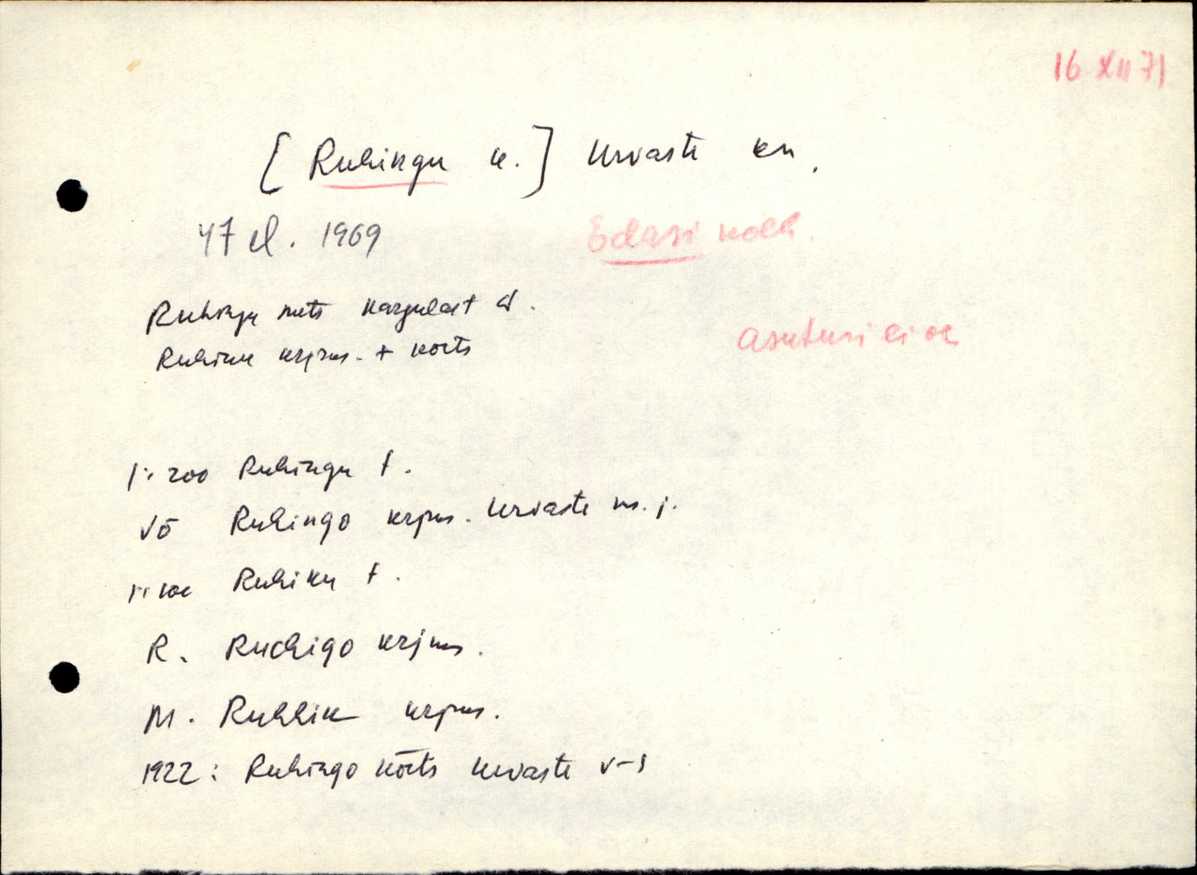 16 XII 71
[Ruhingu k.] Urvaste kn.
47 el. 1969
Edasi kolh.
Ruhingu mets Kargulast
Ruhiku krjms. + kõrts
asutusi ei ole
1:200 Ruhingu t.
Võ Ruhingo krjms. Urvaste m. j.
Ruhiku t.
R. Ruchigo krjms.
M. Ruhhik krjms.
1922: Ruhingo kõrts Urvaste v-s